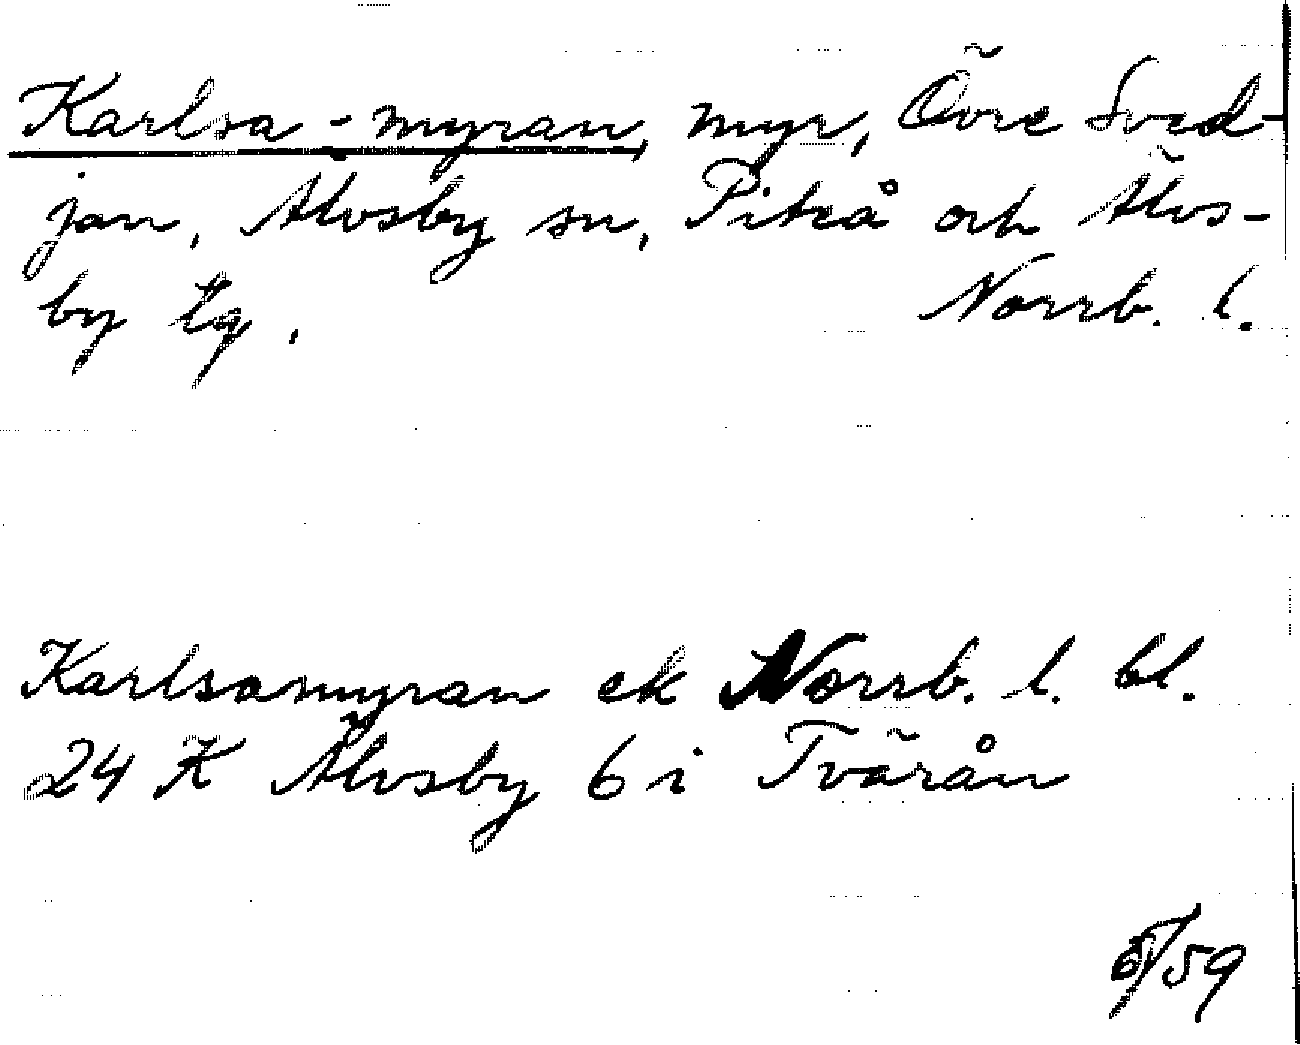 Karlsa-myran, myr, Övre Sved-
jan, Älvsby sn, Piteå och Älvs-
by tg. Norrb. l.
Karlsamyran ek Norrb. l. bl.
24 K Älvsby 6 i Tvärån
/59